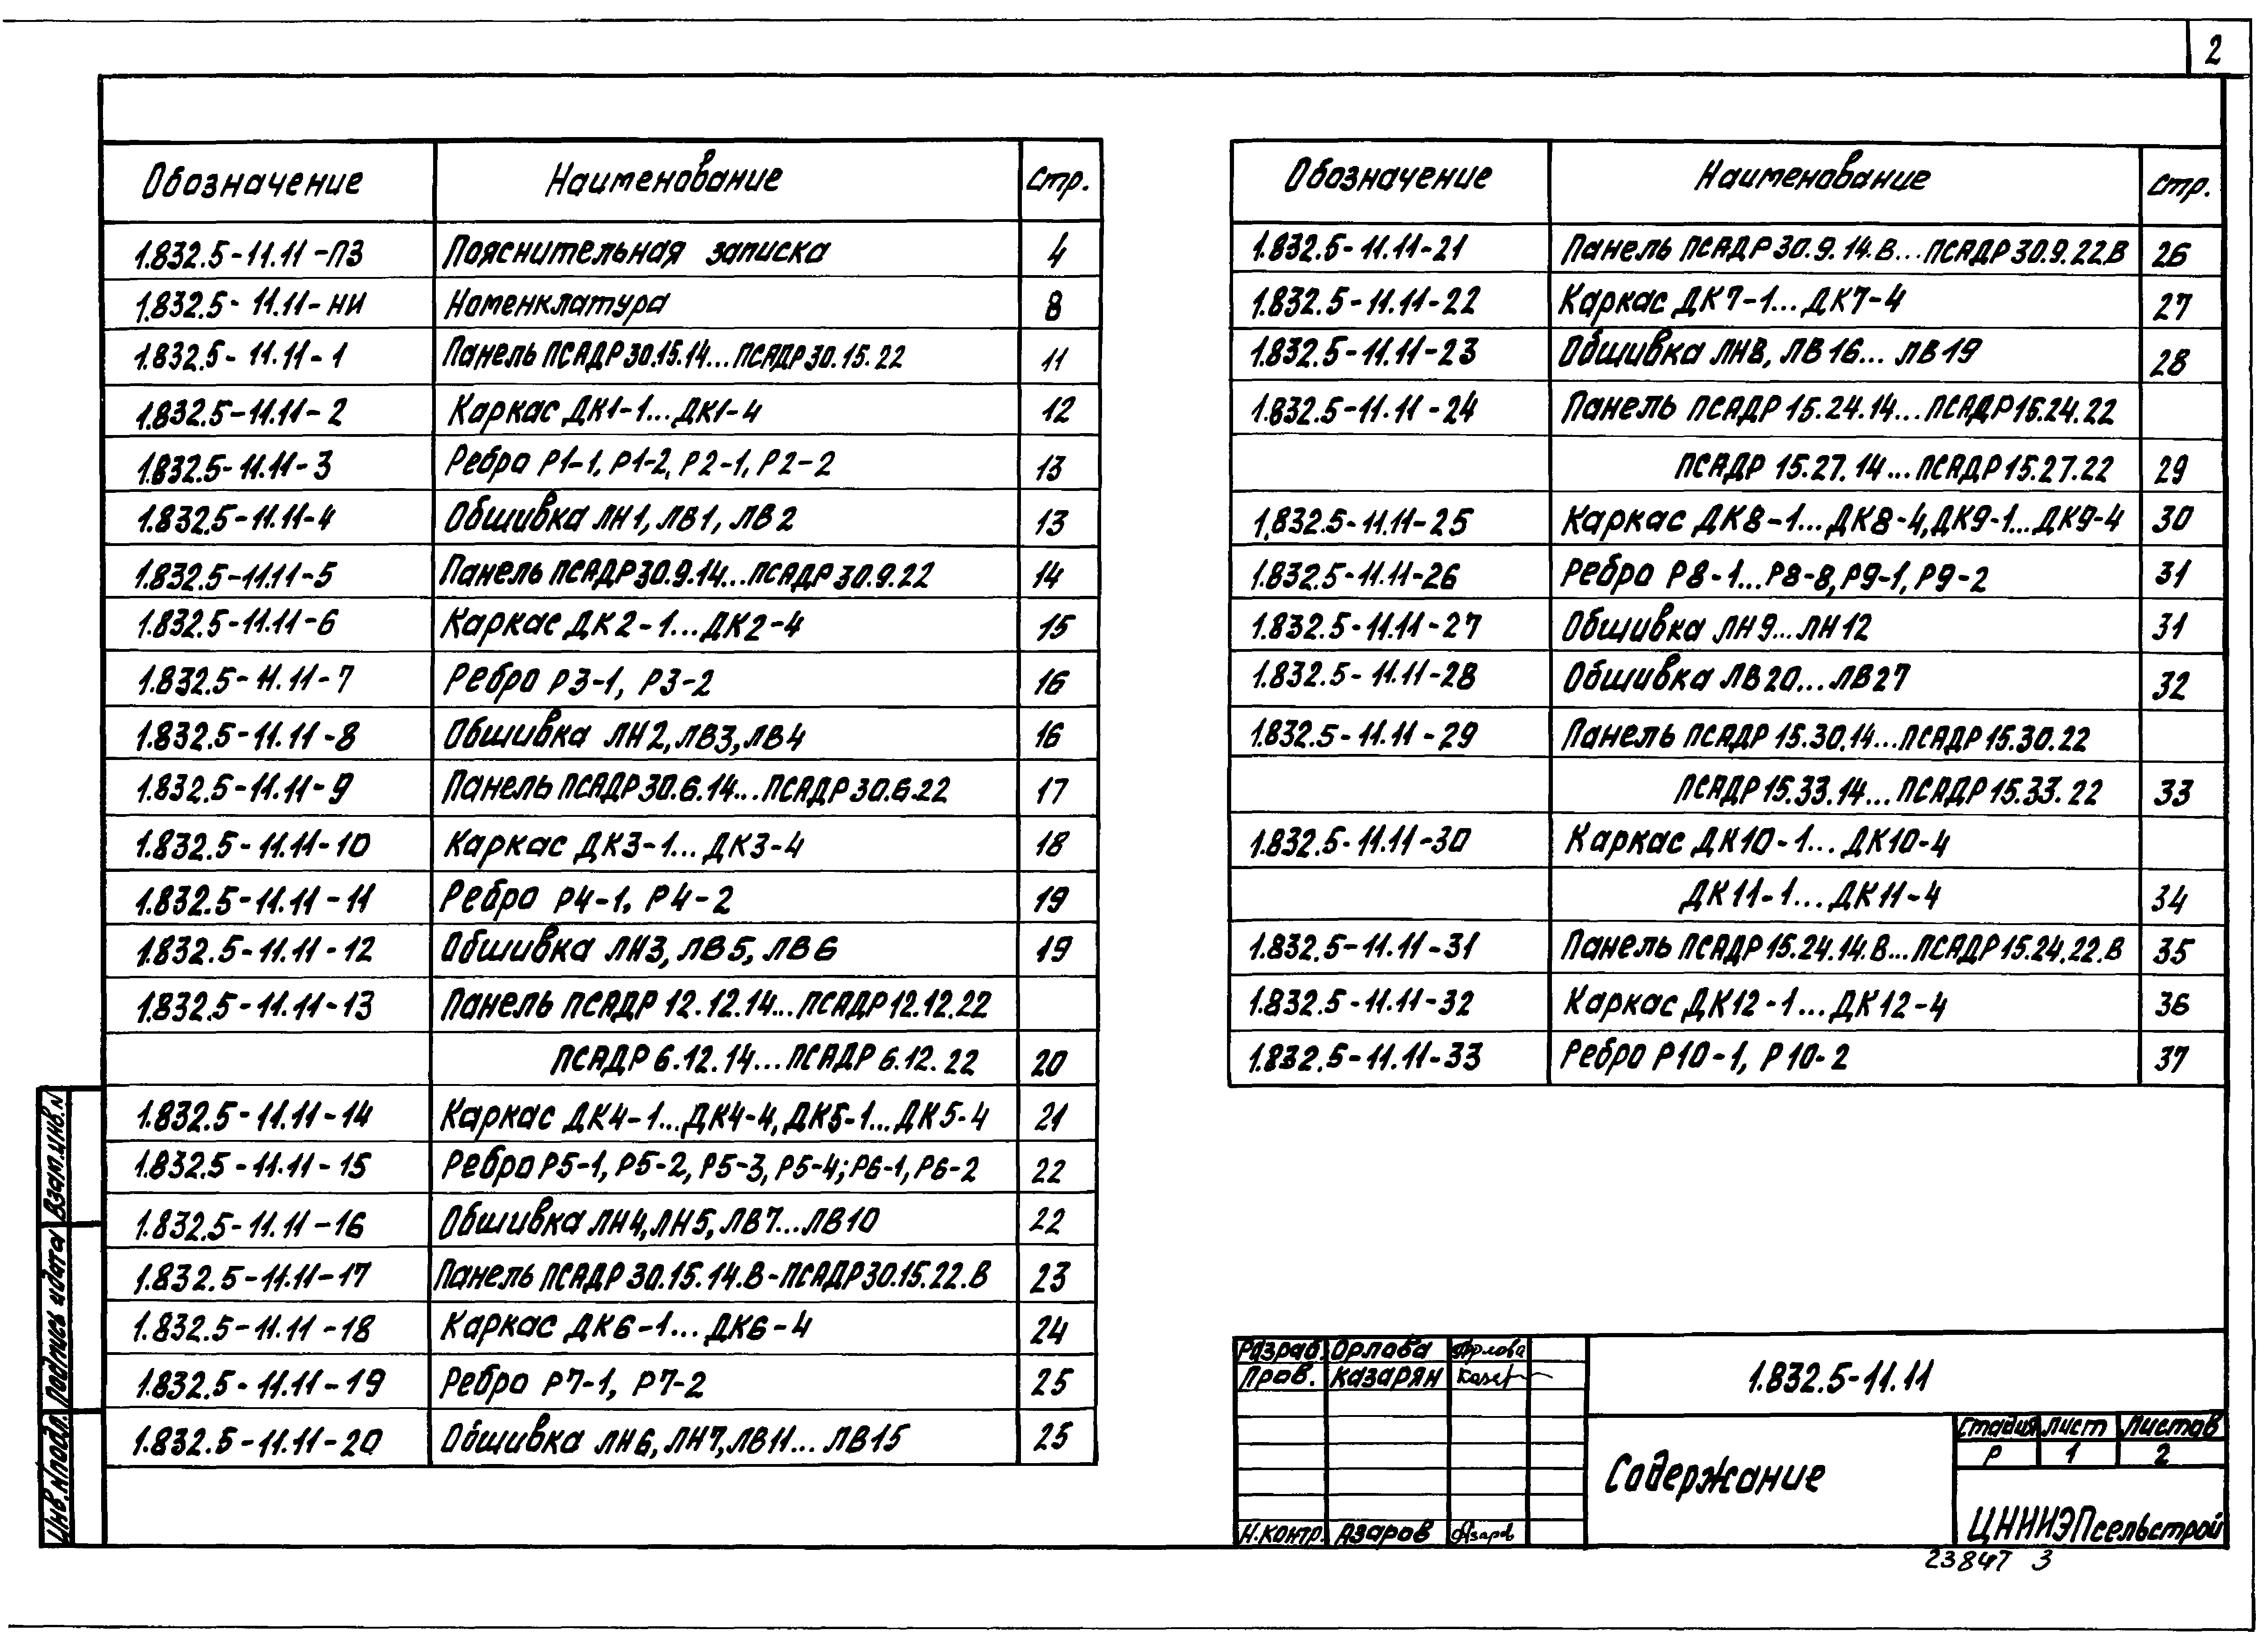 2
Обозначение Наименование Стр.
1.832.5-11.11-ПЗ Пояснительная записка 4
1.832.5-11.11-НИ Номенклатура 8
1.832.5-11.11-1 Панель ПСАДР30.15.14...ПСАДР30.15.22 11
1.832.5-11.11-2 Каркас ДК1-1...ДК1-4 12
1.832.5-11.11-3 Ребро Р1-1, Р1-2, Р2-1, Р2-2 13
1.832.5-11.11-4 Обшивка ЛН1, ЛВ1, ЛВ2 13
1.832.5-11.11-5 Панель ПСАДР30.9.14...ПСАДР30.9.22 14
1.832.5-11.11-6 Каркас ДК2-1...ДК2-4 15
1.832.5-11.11-7 Ребро Р3-1, Р3-2 16
1.832.5-11.11-8 Обшивка ЛН2, ЛВ3, ЛВ4 16
1.832.5-11.11-9 Панель ПСАДР30.6.14...ПСАДР30.6.22 17
1.832.5-11.11-10 Каркас ДК3-1...ДК3-4 18
1.832.5-11.11-11 Ребро Р4-1, Р4-2 19
1.832.5-11.11-12 Обшивка ЛН3, ЛВ5, ЛВ6 19
1.832.5-11.11-13 Панель ПСАДР 12.12.14...ПСАДР12.12.22
ПСАДР 6.12.14...ПСАДР 6.12.22 20
1.832.5-11.11-14 Каркас ДК4-1...ДК4-4, ДК5-1...ДК5-4 21
1.832.5-11.11-15 Ребро Р5-1, Р5-2, Р5-3, Р5-4; Р6-1, Р6-2 22
1.832.5-11.11-16 Обшивка ЛН4, ЛН5, ЛВ7...ЛВ10 22
1.832.5-11.11-17 Панель ПСАДР30.15.14.В-ПСАДР30.15.22.В 23
1.832.5-11.11-18 Каркас ДК6-1...ДК6-4 24
1.832.5-11.11-19 Ребро Р7-1, Р7-2 25
1.832.5-11.11-20 Обшивка ЛН6, ЛН7, ЛВ11...ЛВ15 25
Обозначение Наименование Стр.
1.832.5-11.11-21 Панель ПСАДР30.9.14.В...ПСАДР30.9.22В 26
1.832.5-11.11-22 Каркас ДК7-1...ДК7-4 27
1.832.5-11.11-23 Обшивка ЛН8, ЛВ16...ЛВ19 28
1.832.5-11.11-24 Панель ПСАДР 15.24.14...ПСАДР15.24.22
ПСАДР 15.27.14...ПСАДР15.27.22 29
1.832.5-11.11-25 Каркас ДК8-1...ДК8-4, ДК9-1...ДК9-4 30
1.832.5-11.11-26 Ребро Р8-1...Р8-8, Р9-1, Р9-2 31
1.832.5-11.11-27 Обшивка ЛН9...ЛН12 31
1.832.5-11.11-28 Обшивка ЛВ20...ЛВ27 32
1.832.5-11.11-29 Панель ПСАДР 15.30.14...ПСАДР15.30.22
ПСАДР15.33.14...ПСАДР15.33.22 33
1.832.5-11.11-30 Каркас ДК10-1...ДК10-4
ДК11-1...ДК11-4 34
1.832.5-11.11-31 Панель ПСАДР15.24.14.В...ПСАДР15.24.22.В 35
1.832.5-11.11-32 Каркас ДК12-1...ДК12-4 36
1.832.5-11.11-33 Ребро Р10-1, Р10-2 37
Взам.инв.N
Подпись и дата
Инв.N подл.
Разраб. Орлова Орлова
Пров. Казарян Казар
Н.контр. Азаров Азаров
1.832.5-11.11
Содержание
Стадия Лист Листов
Р 1 2
ЦНИИЭПсельстрой
23847 3